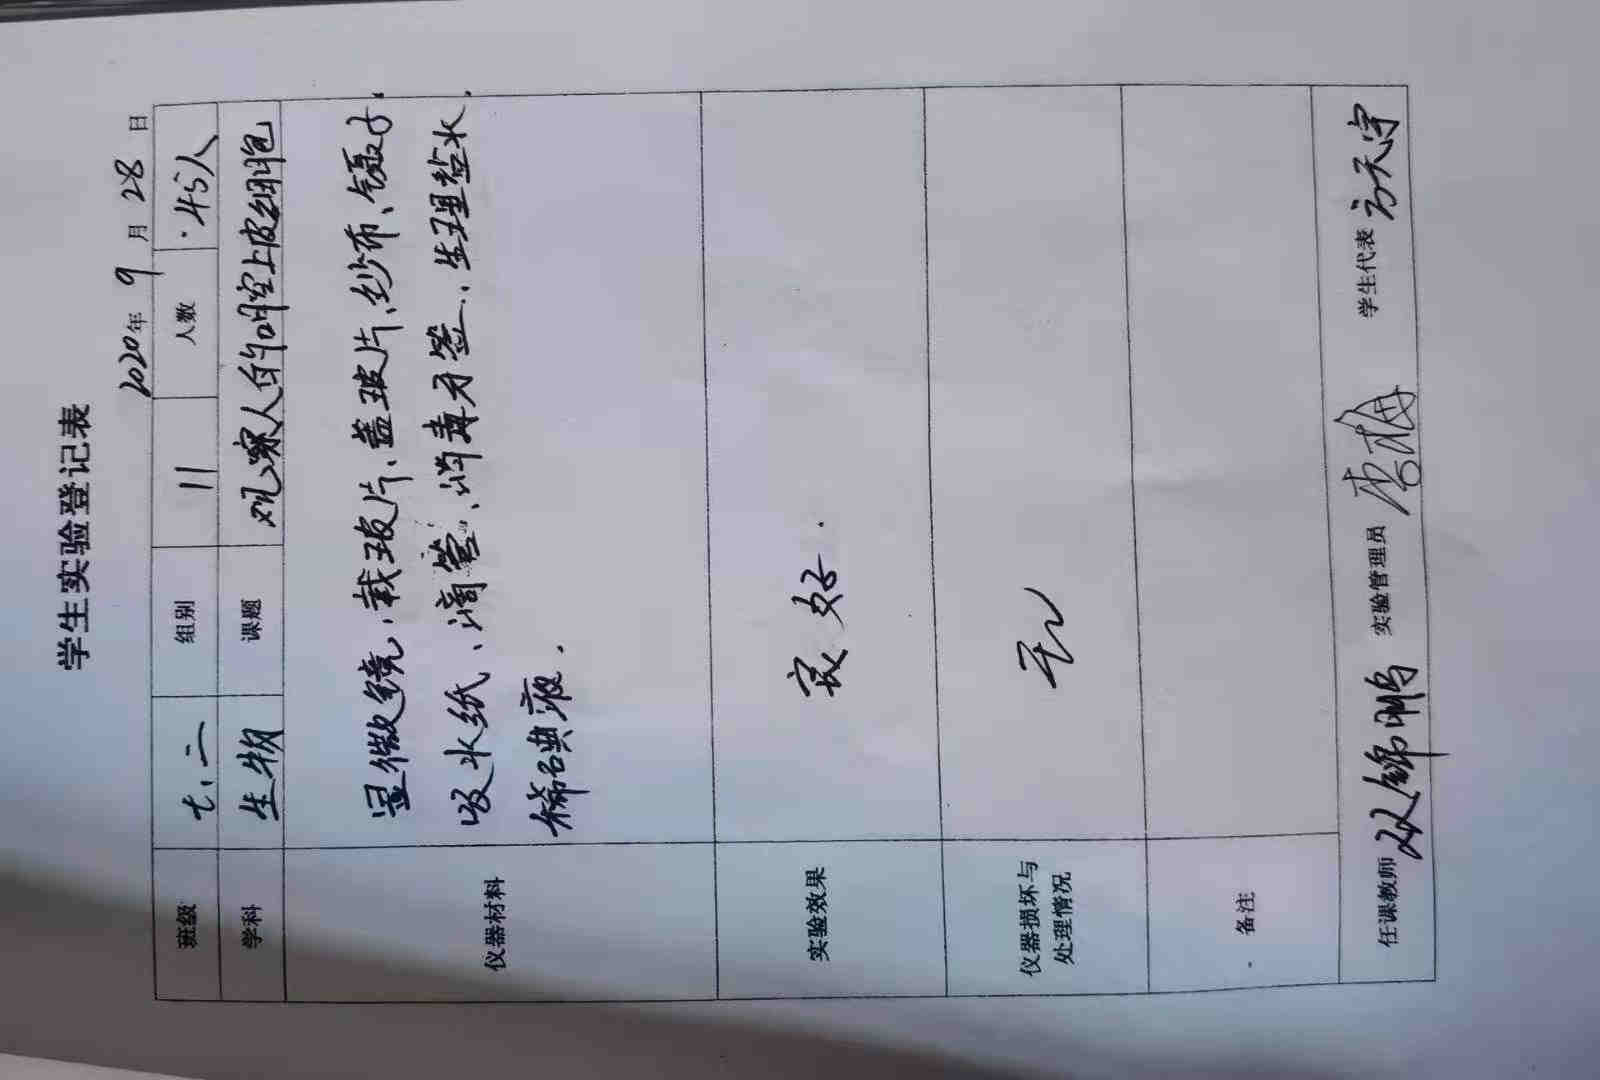 学生实验登记表
2020年 9 月 28 日
班级 七、二 组别 11 人数 45人
学科 生物 课题 观察人的口腔上皮细胞
仪器材料
显微镜、载玻片、盖玻片、纱布、镊子、
吸水纸、滴管、消毒牙签、生理盐水、
稀碘液.
实验效果 良好.
仪器损坏与
处理情况 无
备注
任课教师 双锦鹏 实验管理员 李梅 学生代表 方天宇